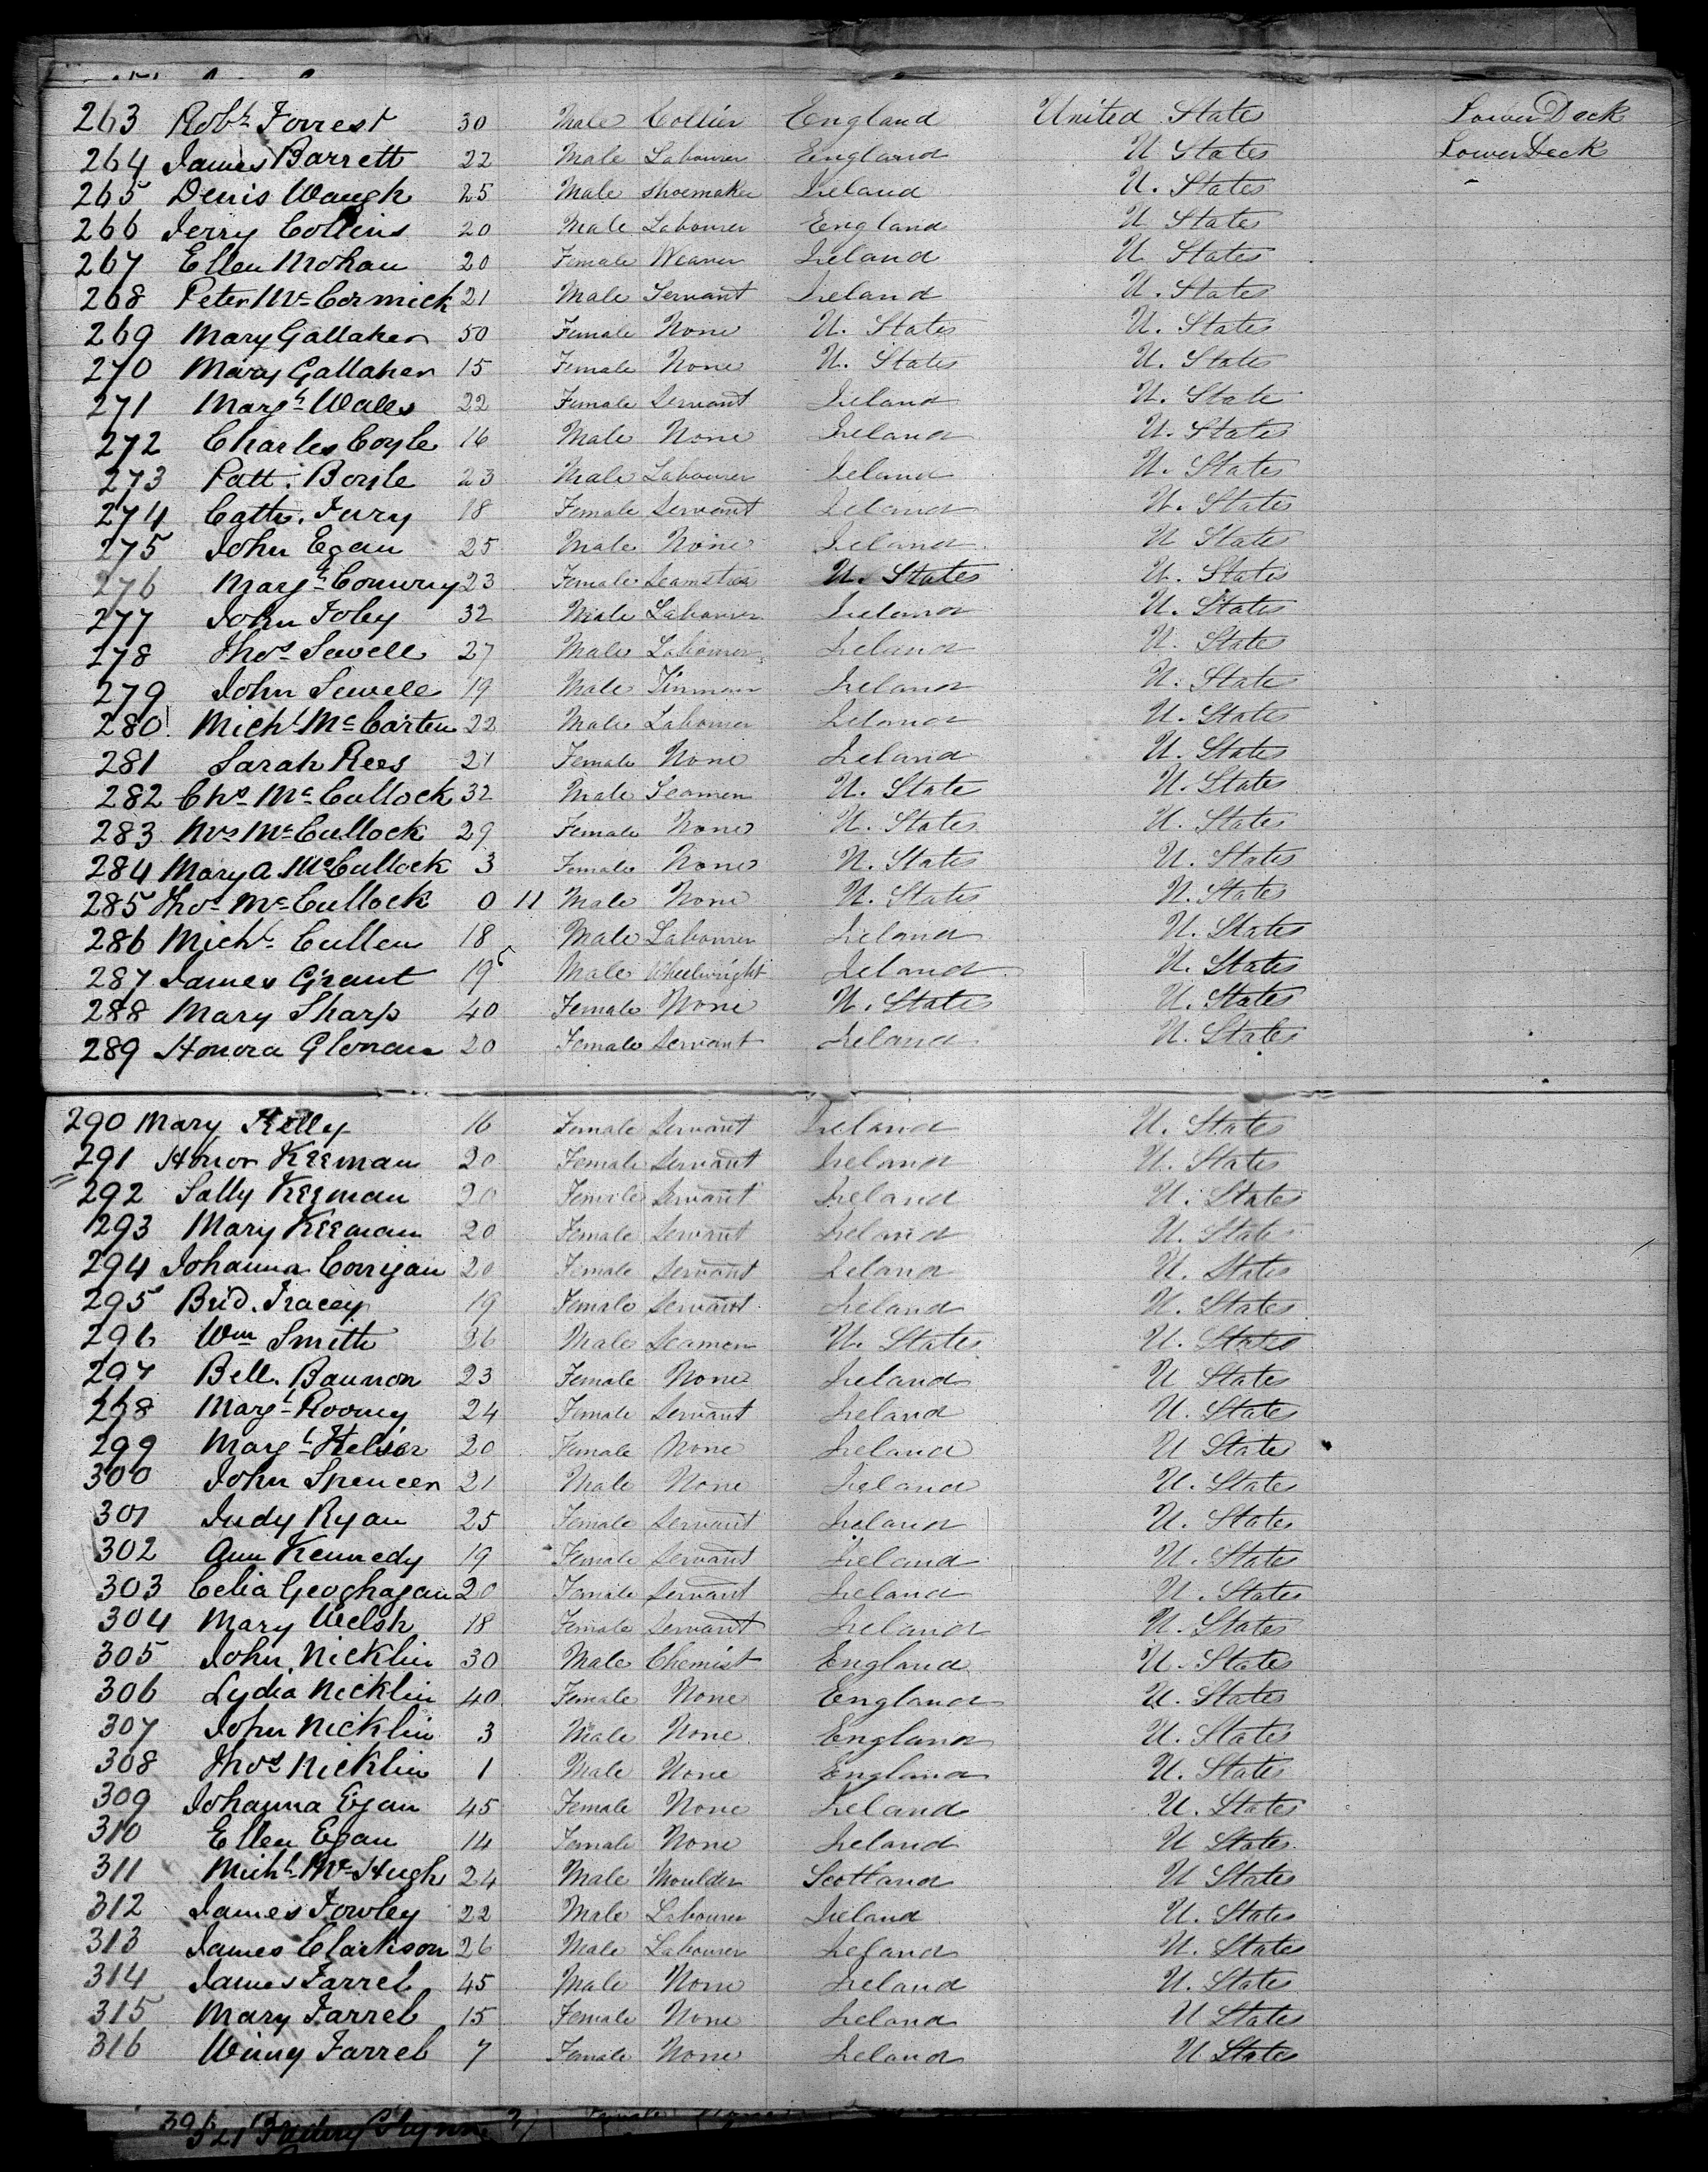 263 Robt Forrest 30 Male Collier England United State Lower Deck
264 James Barrett 22 Male Labourer England U States Lower Deck
265 Denis Waugh 25 Male Shoemaker Ireland U. States
266 Jerry Collins 20 Male Labourer England U States
267 Ellen Mohan 20 Female Weaver Ireland U States
268 Peter McCormick 21 Male Servant Ireland U. States
269 Mary Gallaher 50 Female None U. States U. States
270 Mary Gallaher 15 Female None U. States U. States
271 Margt Walls 22 Female Servant Ireland U. State
272 Charles Coyle 16 Male None Ireland U. States
273 Patt. Boyle 23 Male Labourer Ireland U. States
274 Cath. Fury 18 Female Servant Ireland U. States
275 John Egan 25 Male None Ireland U States
276 Margt Conwry 23 Female Seamstress U. States U. States
277 John Foley 32 Male Labourer Ireland U. States
278 Thos Sewell 27 Male Labourer Ireland U. State
279 John Sewell 19 Male Tinman Ireland U. State
280 Michl McCarten 22 Male Labourer Ireland U. States
281 Sarah Rees 21 Female None Ireland U. States
282 Chs McCullock 32 Male Seamen U. State U. States
283 Mrs McCullock 29 Female None U. States U. States
284 Mary A McCullock 3 Female None U. States U. States
285 Thos McCullock 0 11 Male None U. States U. States
286 Michl Cullen 18 Male Labourer Ireland U. States
287 James Grant 19 Male Wheelwright Ireland U. States
288 Mary Sharp 40 Female None U. States U. States
289 Honora Glenan 20 Female Servant Ireland U. States
290 Mary Kelly 16 Female Servant Ireland U. States
291 Honor Keeman 20 Female Servant Ireland U. States
292 Sally Keeman 20 Female Servant Ireland U. States
293 Mary Keeman 20 Female Servant Ireland U. States
294 Johanna Corrigan 20 Female Servant Ireland U. States
295 Brid. Tracey 19 Female Servant Ireland U. States
296 Wm Smith 36 Male Seamen U. States U. States
297 Bell. Bannon 23 Female None Ireland U States
298 Margt Rooney 24 Female Servant Ireland U. States
299 Margt 20 Female None Ireland U States
300 John Spencer 21 Male None Ireland U. States
301 Judy Ryan 25 Female Servant Ireland U. States
302 Ann Kennedy 19 Female Servant Ireland U. States
303 Celia Geoghagan 20 Female Servant Ireland U. States
304 Mary Welsh 18 Female Servant Ireland U. States
305 John Nicklin 30 Male Chemist England U. States
306 Lydia Nicklin 40 Female None England U. States
307 John Nicklin 3 Male None England U. States
308 Thos Nicklin 1 Male None England U. States
309 Johanna Egan 45 Female None Ireland U. States
310 Ellen Egan 14 Female None Ireland U States
311 Michl McHugh 24 Male Moulder Scotland U States
312 James Fowley 22 Male Labourer Ireland U. States
313 James Clarkson 26 Male Labourer Ireland U. States
314 James Farrel 45 Male None Ireland U. States
315 Mary Farrel 15 Female None Ireland U States
316 Winny Farrel 7 Female None Ireland U States